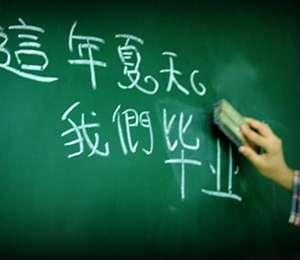 這年夏天
我們毕业